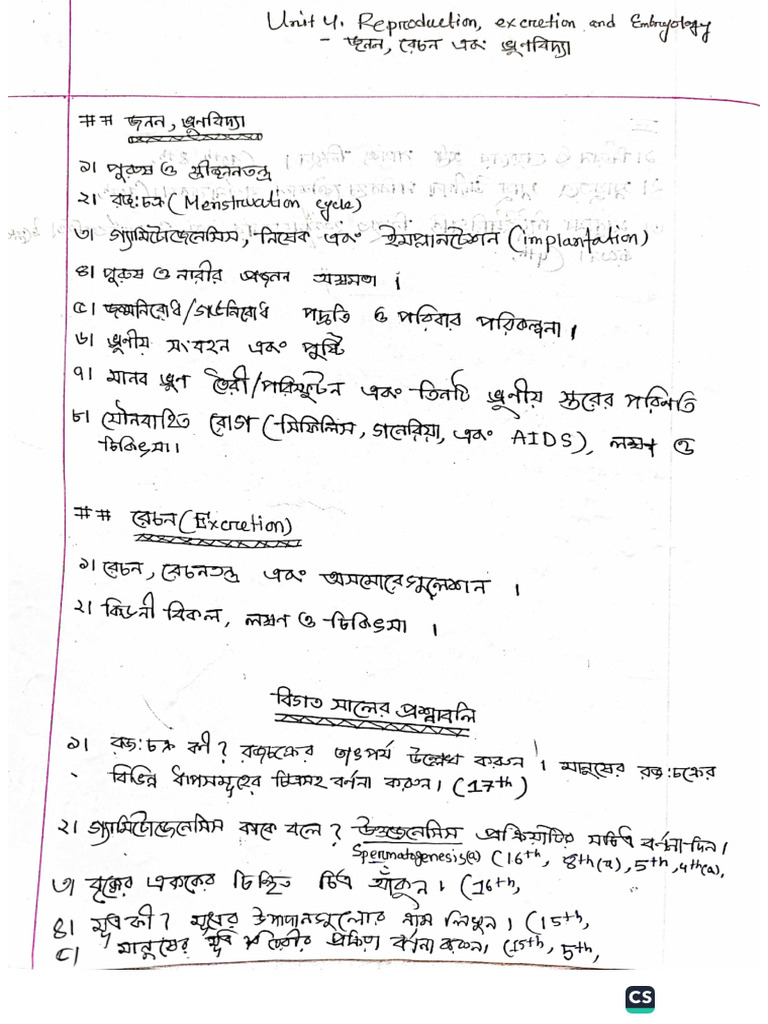 Unit 4. Reproduction, excretion and Embryology
- জনন, রেচন এবং ভ্রূণবিদ্যা
## জনন, ভ্রূণবিদ্যা
১। পুরুষ ও স্ত্রীজননতন্ত্র
২। রজ:চক্র (Menstruation cycle)
৩। গ্যামিটোজেনেসিস, নিষেক এবং ইমপ্লানটেশন (implantation)
৪। পুরুষ ও নারীর প্রজনন অক্ষমতা।
৫। জন্মনিরোধ/গর্ভনিরোধ পদ্ধতি ও পরিবার পরিকল্পনা।
৬। ভ্রূণীয় সংবহন এবং পুষ্টি
৭। মানব ভ্রূণ তৈরী/পরিস্ফুটন এবং তিনটি ভ্রূণীয় স্তরের পরিনতি
৮। যৌনবাহিত রোগ (সিফিলিস, গনোরিয়া, এবং AIDS), লক্ষণ ও
চিকিৎসা।
## রেচন (Excretion)
১। রেচন, রেচনতন্ত্র এবং অসমোরেগুলেশন।
২। কিডনী বিকল, লক্ষণ ও চিকিৎসা।
বিগত সালের প্রশ্নাবলি
১। রজ:চক্র কী? রজচক্রের তাৎপর্য উল্লেখ করুন। মানুষের রজ:চক্রের
বিভিন্ন ধাপসমূহের চিত্রসহ বর্ননা করুন। (17th)
২। গ্যামিটোজেনেসিস কাকে বলে? উওজেনেসিস প্রক্রিয়াটির সচিত্র বর্ননা দিন।
Spermatogenesis(a) (16th, 8th(a), 5th, 4th(a),
৩। বৃক্কের এককের চিহ্নিত চিত্র আঁকুন। (16th,
৪। মূত্র কী? মূত্রের উপাদানগুলোর নাম লিখুন। (15th,
৫। মানুষের মূত্র তৈরীর প্রক্রিয়া বর্ননা করুন। (15th, 5th,
CS